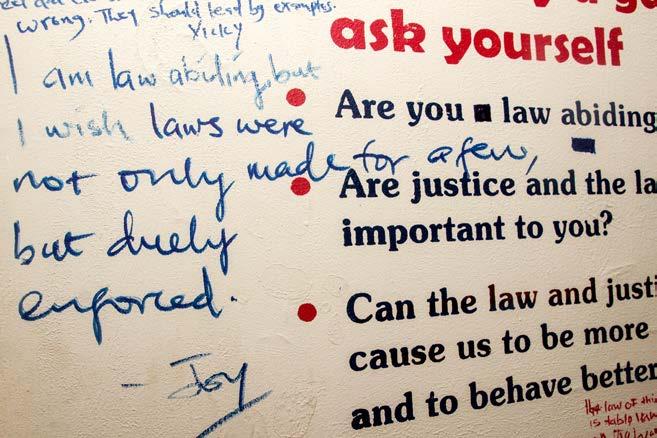 wrong. They should lead by examples.
Vicky
I am law abiding, but
I wish laws were
not only made for a few,
but duely
enforced.
- Joy
ask yourself
Are you law abiding
Are justice and the la
important to you?
Can the law and justi
cause us to be more
and to behave better
the law of thi
is table